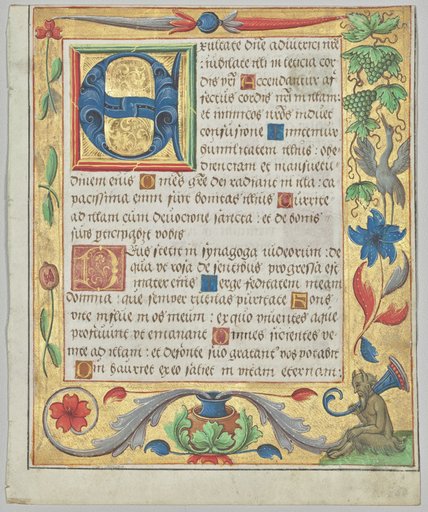 Exultate dne adiutrici nre
: iubilate illi in leticia cor
dis vri Accendantur af
fectus cordis vri in illam:
et inimicos vros induet
confusione Imitemur
humilitatem illius: obe
dienciam et mansuetu
dinem eius Omes gre dei radiant in illa: ca
pacissima enim fuit bonitas illius Currite
ad illam cum devocione sancta: et de bonis
suis participabit vobis
Deus stetit in synagoga iudeorum: de
qua ut rosa de sentibus progressa est
mater eius Terge feditatem meam
domina: que semper rutilas puritate Fons
vite influe in os meum: ex quo viventes aque
profluunt et emanant Omnes sicientes ve
nite ad illam: et de fonte suo gratant vos potabit
Qui hauriet ex eo saliet in vitam eternam: